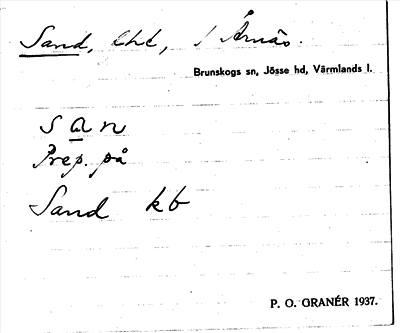 Sand, lht, / Årnäs.
Brunskogs sn, Jösse hd, Värmlands l.
san
Prep. på
Sand kb
P. O. GRANÉR 1937.